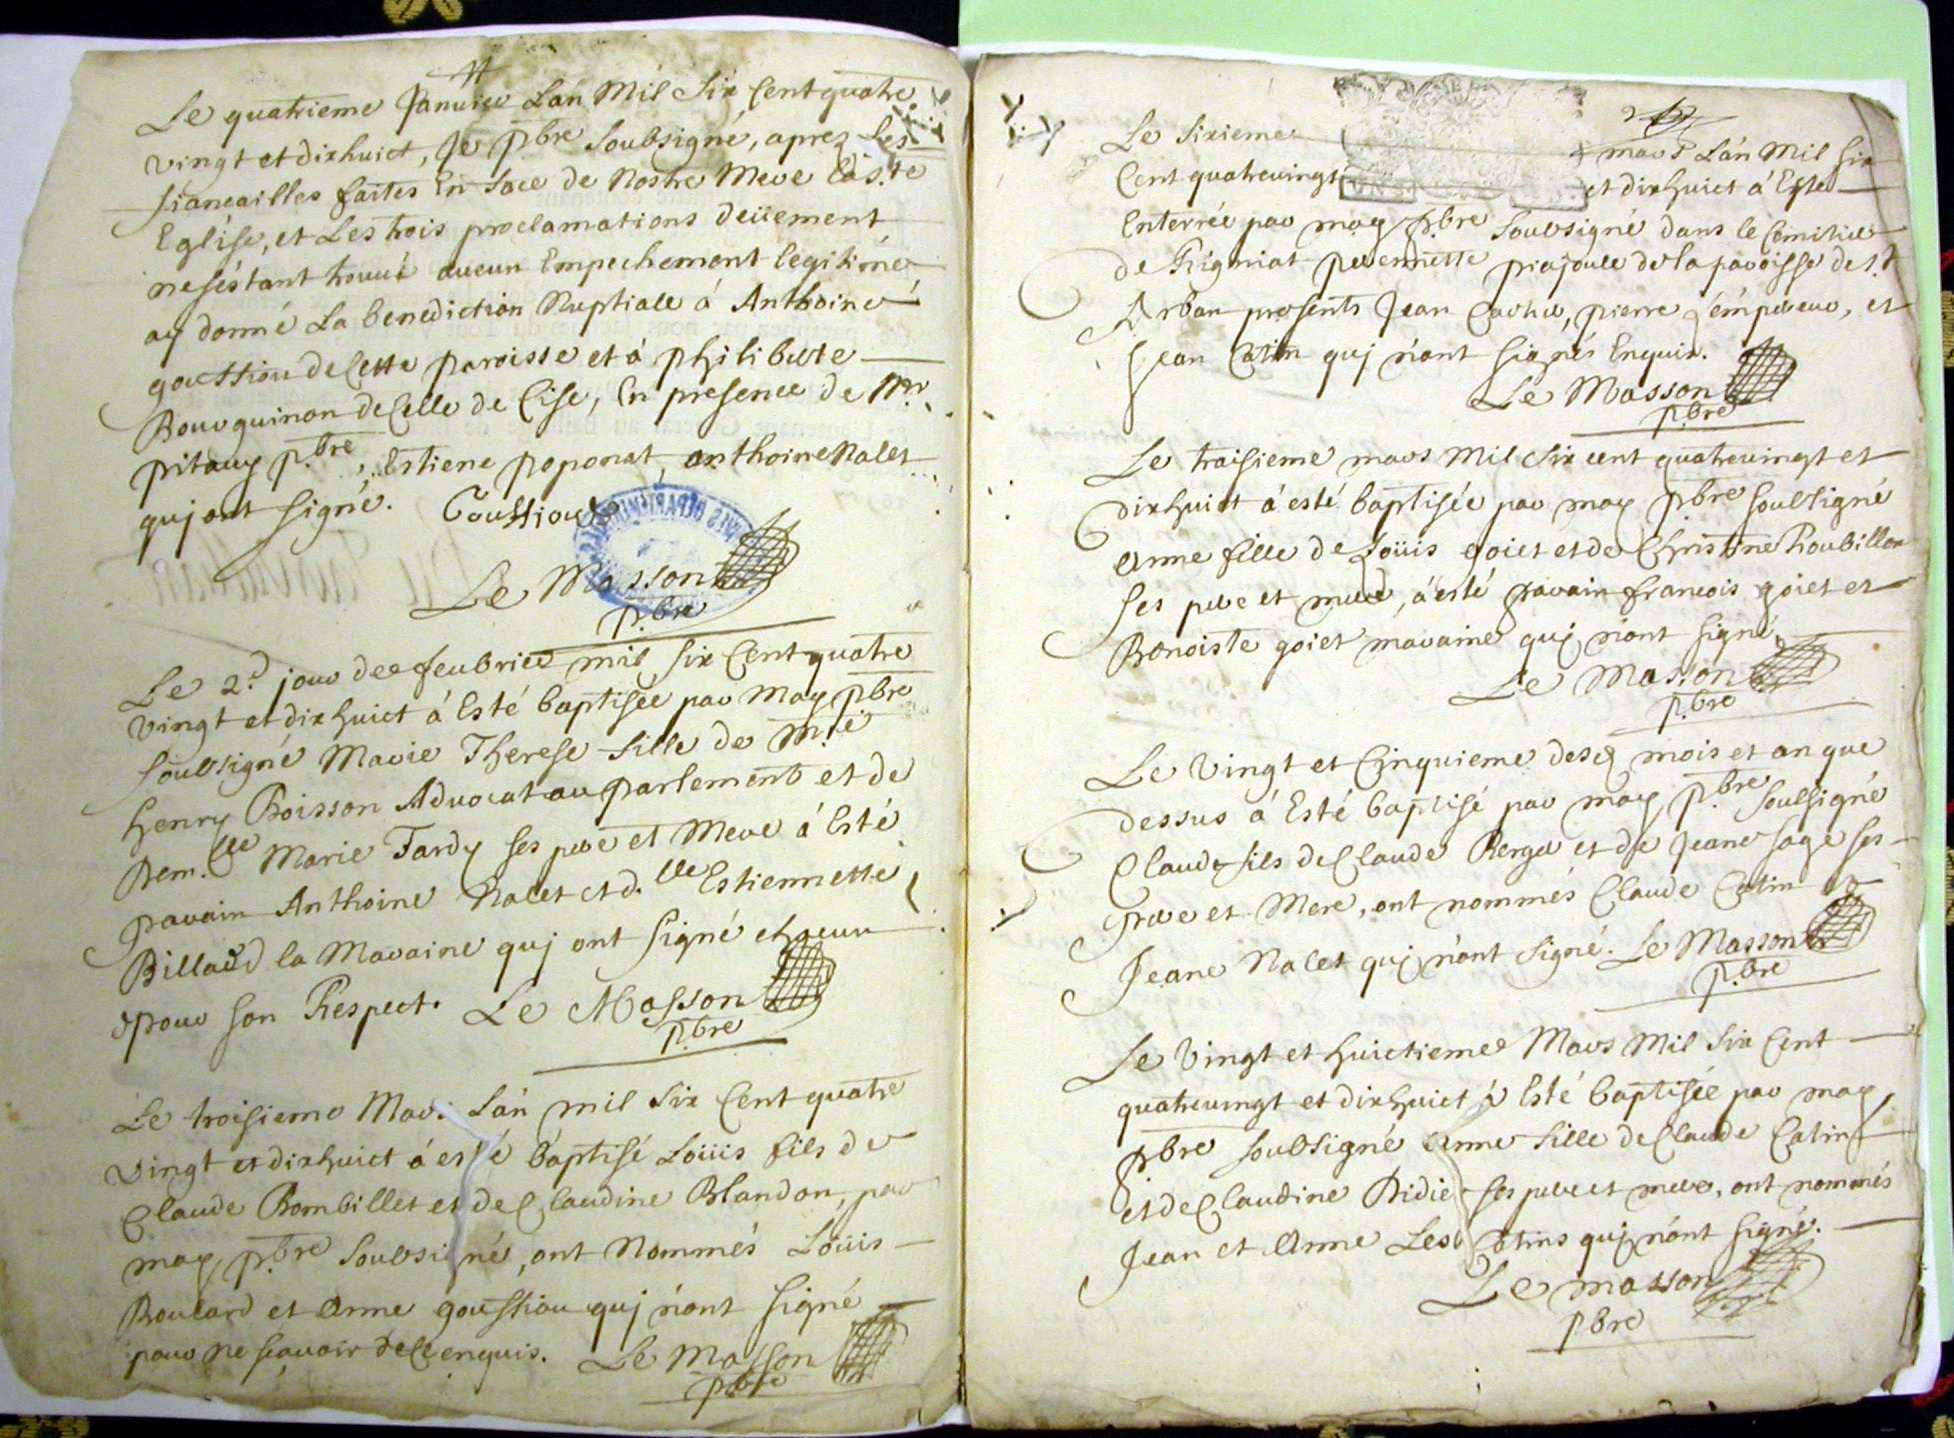 Le quatrieme Januier Lan Mil Six Cent quatre
vingt et dixhuict, Je pbre soubsigné, aprez les
fiancailles faites En face de Nostre Mere La Ste
Eglise, et Les trois proclamations deüement
ne s'éstant trouué aucun Empechement legitime
ay donné La benediction Nuptiale á Anthoine
goustiou de Cette paroisse et á philiberte
Bourguinon de Celle de Cise, En presence de Mr
pitaux pbre, Estiene poponat, anthoine Nalet
quj ont signé. Goustioux
Le Masson
pbre
Le 2d jour de feubrier mil six Cent quatre
vingt et dixhuict á Esté baptisée par moy pbre
soubsigné Marie Therese fille de Mre
henry Boisson Aduocat au parlement et de
Dem.lle Marie Tardy ses pere et Mere á Esté
parain Anthoine Nalet et d.lle Estiennette
Billaud la Maraine quj ont signé chacun
pour son Respect. Le Masson
pbre
Le troisieme Mars Lán mil six Cent quatre
vingt et dixhuict á esté baptisé Loüis fils de
Claude Rombillet et de Claudine Blandon, par
moy pbre soubsigné, ont Nommés Loüis
Boulard et Anne goustiou quj n'ont signé
pour ne sçauoir de Ce enquis. Le Masson
pbre
Le sixieme mars Lán Mil six
Cent quatreuingt et dixhuict á Esté
Enterrée par moy pbre soubsigné dans le Cemitier
de Rigniat perennette priajoule de la paroisse de St
Arban presents Jean Carhe, pierre gémpereur, et
Jean Catin quj n'ont signés Enquis.
Le Masson
pbre
Le troisieme mars Mil Six cent quatreuingt et
dixhuict á esté baptisée par moy pbre soubsigné
Anne fille de Loüis goiet et de Christine Roubillon
ses pere et mere, á esté parain francois goiet et
Benoiste goiet maraine quj n'ont signé
Le Masson
pbre
Le vingt et Cinquieme desd mois et an que
dessus á Esté baptisé par moy pbre soubsigné
Claude fils de Claude Berger et de Jeane sage ses
pere et Mere, ont nommés Claude Catin et
Jeane Nalet quj n'ont signé. Le Masson
pbre
Le vingt et huictieme Mars Mil Six Cent
quatreuingt et dixhuict á Esté baptisée par moy
pbre soubsigné Anne fille de Claude Catin
et de Claudine Didier ses pere et mere, ont nommés
Jean et Anne Les Catins quj n'ont signé.
Le masson
pbre